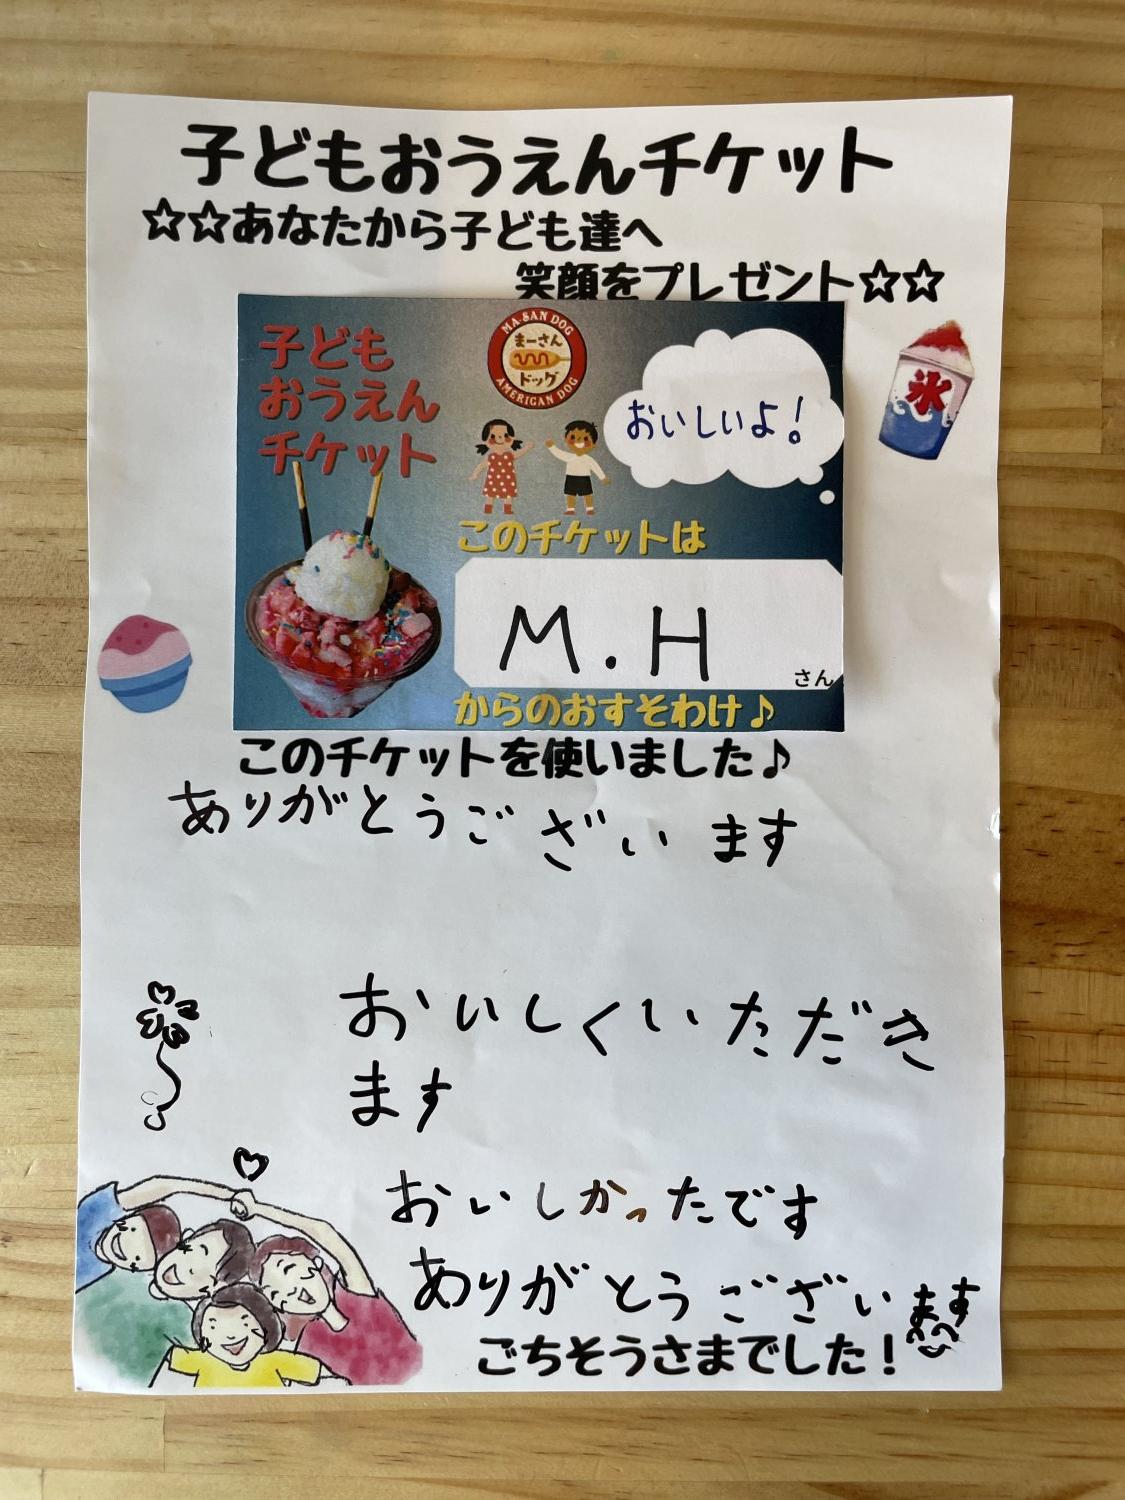 子どもおうえんチケット
☆☆あなたから子ども達へ
笑顔をプレゼント☆☆
子ども
おうえん
チケット
MA-SAN DOG
まーさん
ドッグ
AMERICAN DOG
おいしいよ!
氷
このチケットは
M.H
さん
からのおすそわけ♪
このチケットを使いました♪
ありがとうございます
おいしくいただき
ます
おいしかったです
ありがとうございます
ごちそうさまでした!